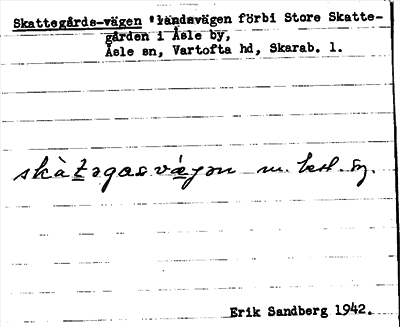 Skattegårds-vägen "landsvägen förbi Store Skatte-
gården i Åsle by,
Åsle sn, Vartofta hd, Skarab. l.
skàt̲əgas vǽ̲gən m. best. sg.
Erik Sandberg 1942.